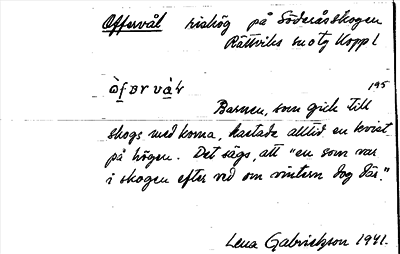 Offervål rishög på Söderåsskogen
Rättviks sn otg Kopp l
195
Barnen, som gick till
skogs med korna, kastade alltid en kvist
på högen. Det sägs, att "en som var
i skogen efter ved om vintern dog där."
Lena Gabrielsson 1941.